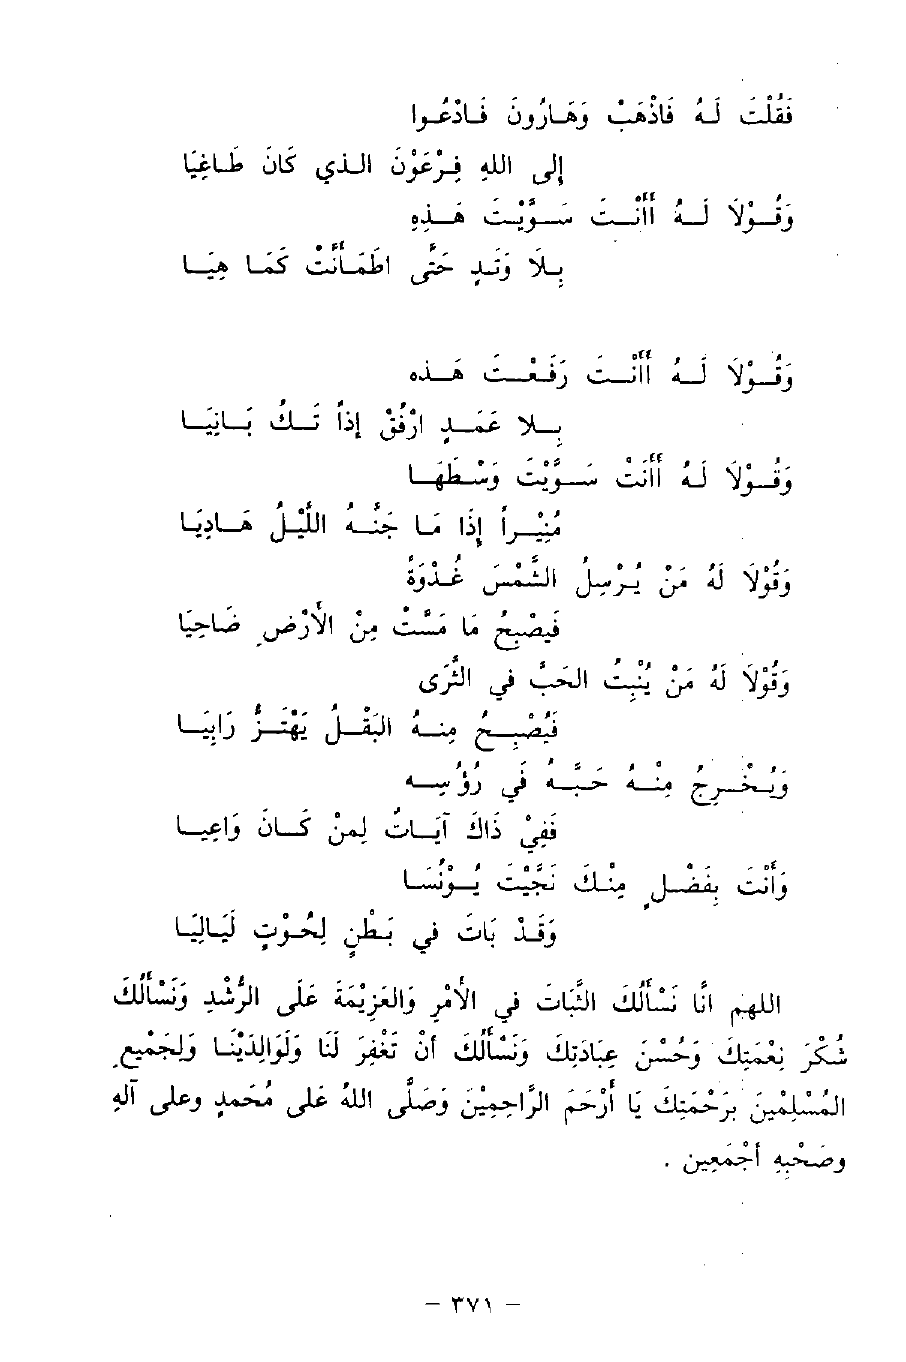 فَقُلْتَ لَهُ فَاذْهَبْ وَهَارُونَ فَادْعُوا
إلى اللهِ فِرْعَوْنَ الذي كَانَ طَاغِيَا
وَقُوْلَا لَهُ أَأَنْتَ سَوَّيْتَ هَذِهِ
بِلَا وَتَدٍ حَتَّى اطمَأَنَّتْ كَمَا هِيَا
وَقُوْلَا لَهُ أَأَنْتَ رَفَعْتَ هَذه
بِلا عَمَدٍ ارْفُقْ إذاً تَكُ بَانِيَا
وَقُوْلَا لَهُ أَأَنْتْ سَوَّيْتَ وَسْطَهَا
مُنِيْراً إذَا مَا جَنَّهُ اللَّيْلُ هَادِيَا
وَقُوْلَا لَهُ مَنْ يُرْسِلُ الشَّمْسَ غُدْوَةً
فَيصْبِحُ مَا مَسَّتْ مِنْ الأَرْضِ ضَاحِيَا
وَقُوْلَا لَهُ مَنْ يُنْبِتُ الحَبَّ في الثَّرَى
فَيُصْبِحُ مِنهُ البَقْلُ يَهْتَزُّ رَابِيَا
وَيُخْرِجُ مِنْهُ حَبَّهُ في رُؤُسِه
فَفِيْ ذَاكَ آيَاتٌ لِمنْ كَانَ وَاعِيا
وَأَنْتَ بِفَضْلٍ مِنْكَ نَجَّيْتَ يُوْنُسَا
وَقَدْ بَاتَ في بَطْنٍ لِحُوْتٍ لَيَالِيَا
اللهم انَّا نَسْأَلُكَ الثَّبَاتَ في الأَمْرِ وَالعَزِيْمَةَ عَلَى الرُّشْدِ وَنَسْأَلُكَ
شُكْرَ نِعْمَتِكَ وَحُسْنَ عِبَادَتِكَ وَنَسْأَلُكَ أنْ تَغْفِرَ لَنَا وَلِوَالِدَيْنَا وَلِجَمْيعِ
المُسْلِمْينَ بِرَحْمَتِكَ يَا أَرْحَمَ الرَّاحِمِيْنَ وَصَلَّى اللهُ عَلى مُحَمدٍ وعلى آلهِ
وصَحْبِهِ أجْمَعِين .
– ٣٧١ –